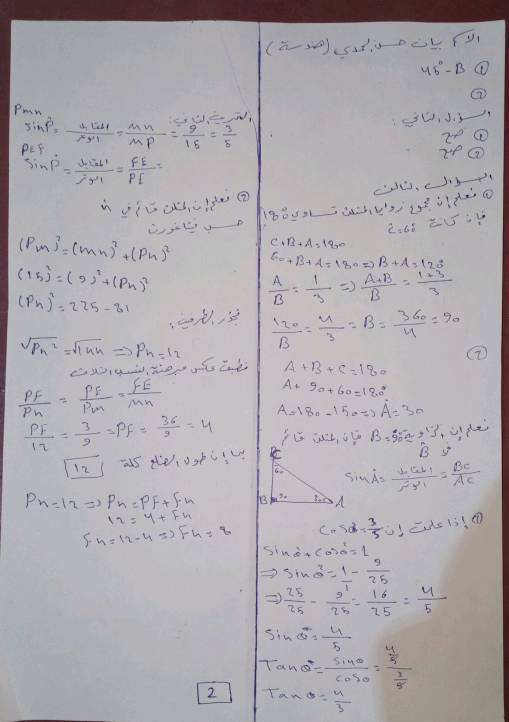 الاسم بيان حسن لحمدي (هندسة)
① 45°-B
②
السؤال الثاني:
① صح
② صح
السؤال الثالث
① نعلم إن مجموع زوايا المثلث تساوي 180
فإن كانت c=60
C+B+A=180
60+B+A=180 => B+A=120
A/B = 1/3 => A+B/B = 1+3/3
120/B = 4/3 = B = +360/4 = 90
②
A+B+C=180
A+90+60=180°
A=180-150 => A=30
نعلم إن الزاوية B=90 فإن المثلث قائم
في B
C
60
B 90 30 A
SinA = المقابل/الوتر = BC/AC
① إذا علمت إن Cosθ=3/5
Sinθ²+Cosθ²=1
=> Sinθ² = 1/1 - 9/25
=> 25/25 - 9/25 = 16/25 = 4/5
Sinθ = 4/5
Tanθ = sinθ/cosθ = 4/5 / 3/5
Tanθ = 4/3
التمرين الثاني:
Pmn
SinP = المقابل/الوتر = mn/MP = 9/15 = 3/5
PEF
SinP = المقابل/الوتر = FE/PE =
② نعلم إن المثلث قائم في n
حسب فيثاغورث
(Pm)²=(mn)²+(Pn)²
(15)²=(9)²+(Pn)²
(Pn)²=225-81
نجذر الطرفين:
√Pn² = √144 => Pn=12
PF/Pn = PE/Pm = FE/mn
PF/12 = 3/9 = PF = 36/9 = 4
بما إن طول الضلع كلة 12
Pn=12 => Pn=PF+Fn
12=4+Fn
Fn=12-4 => Fn=8
2